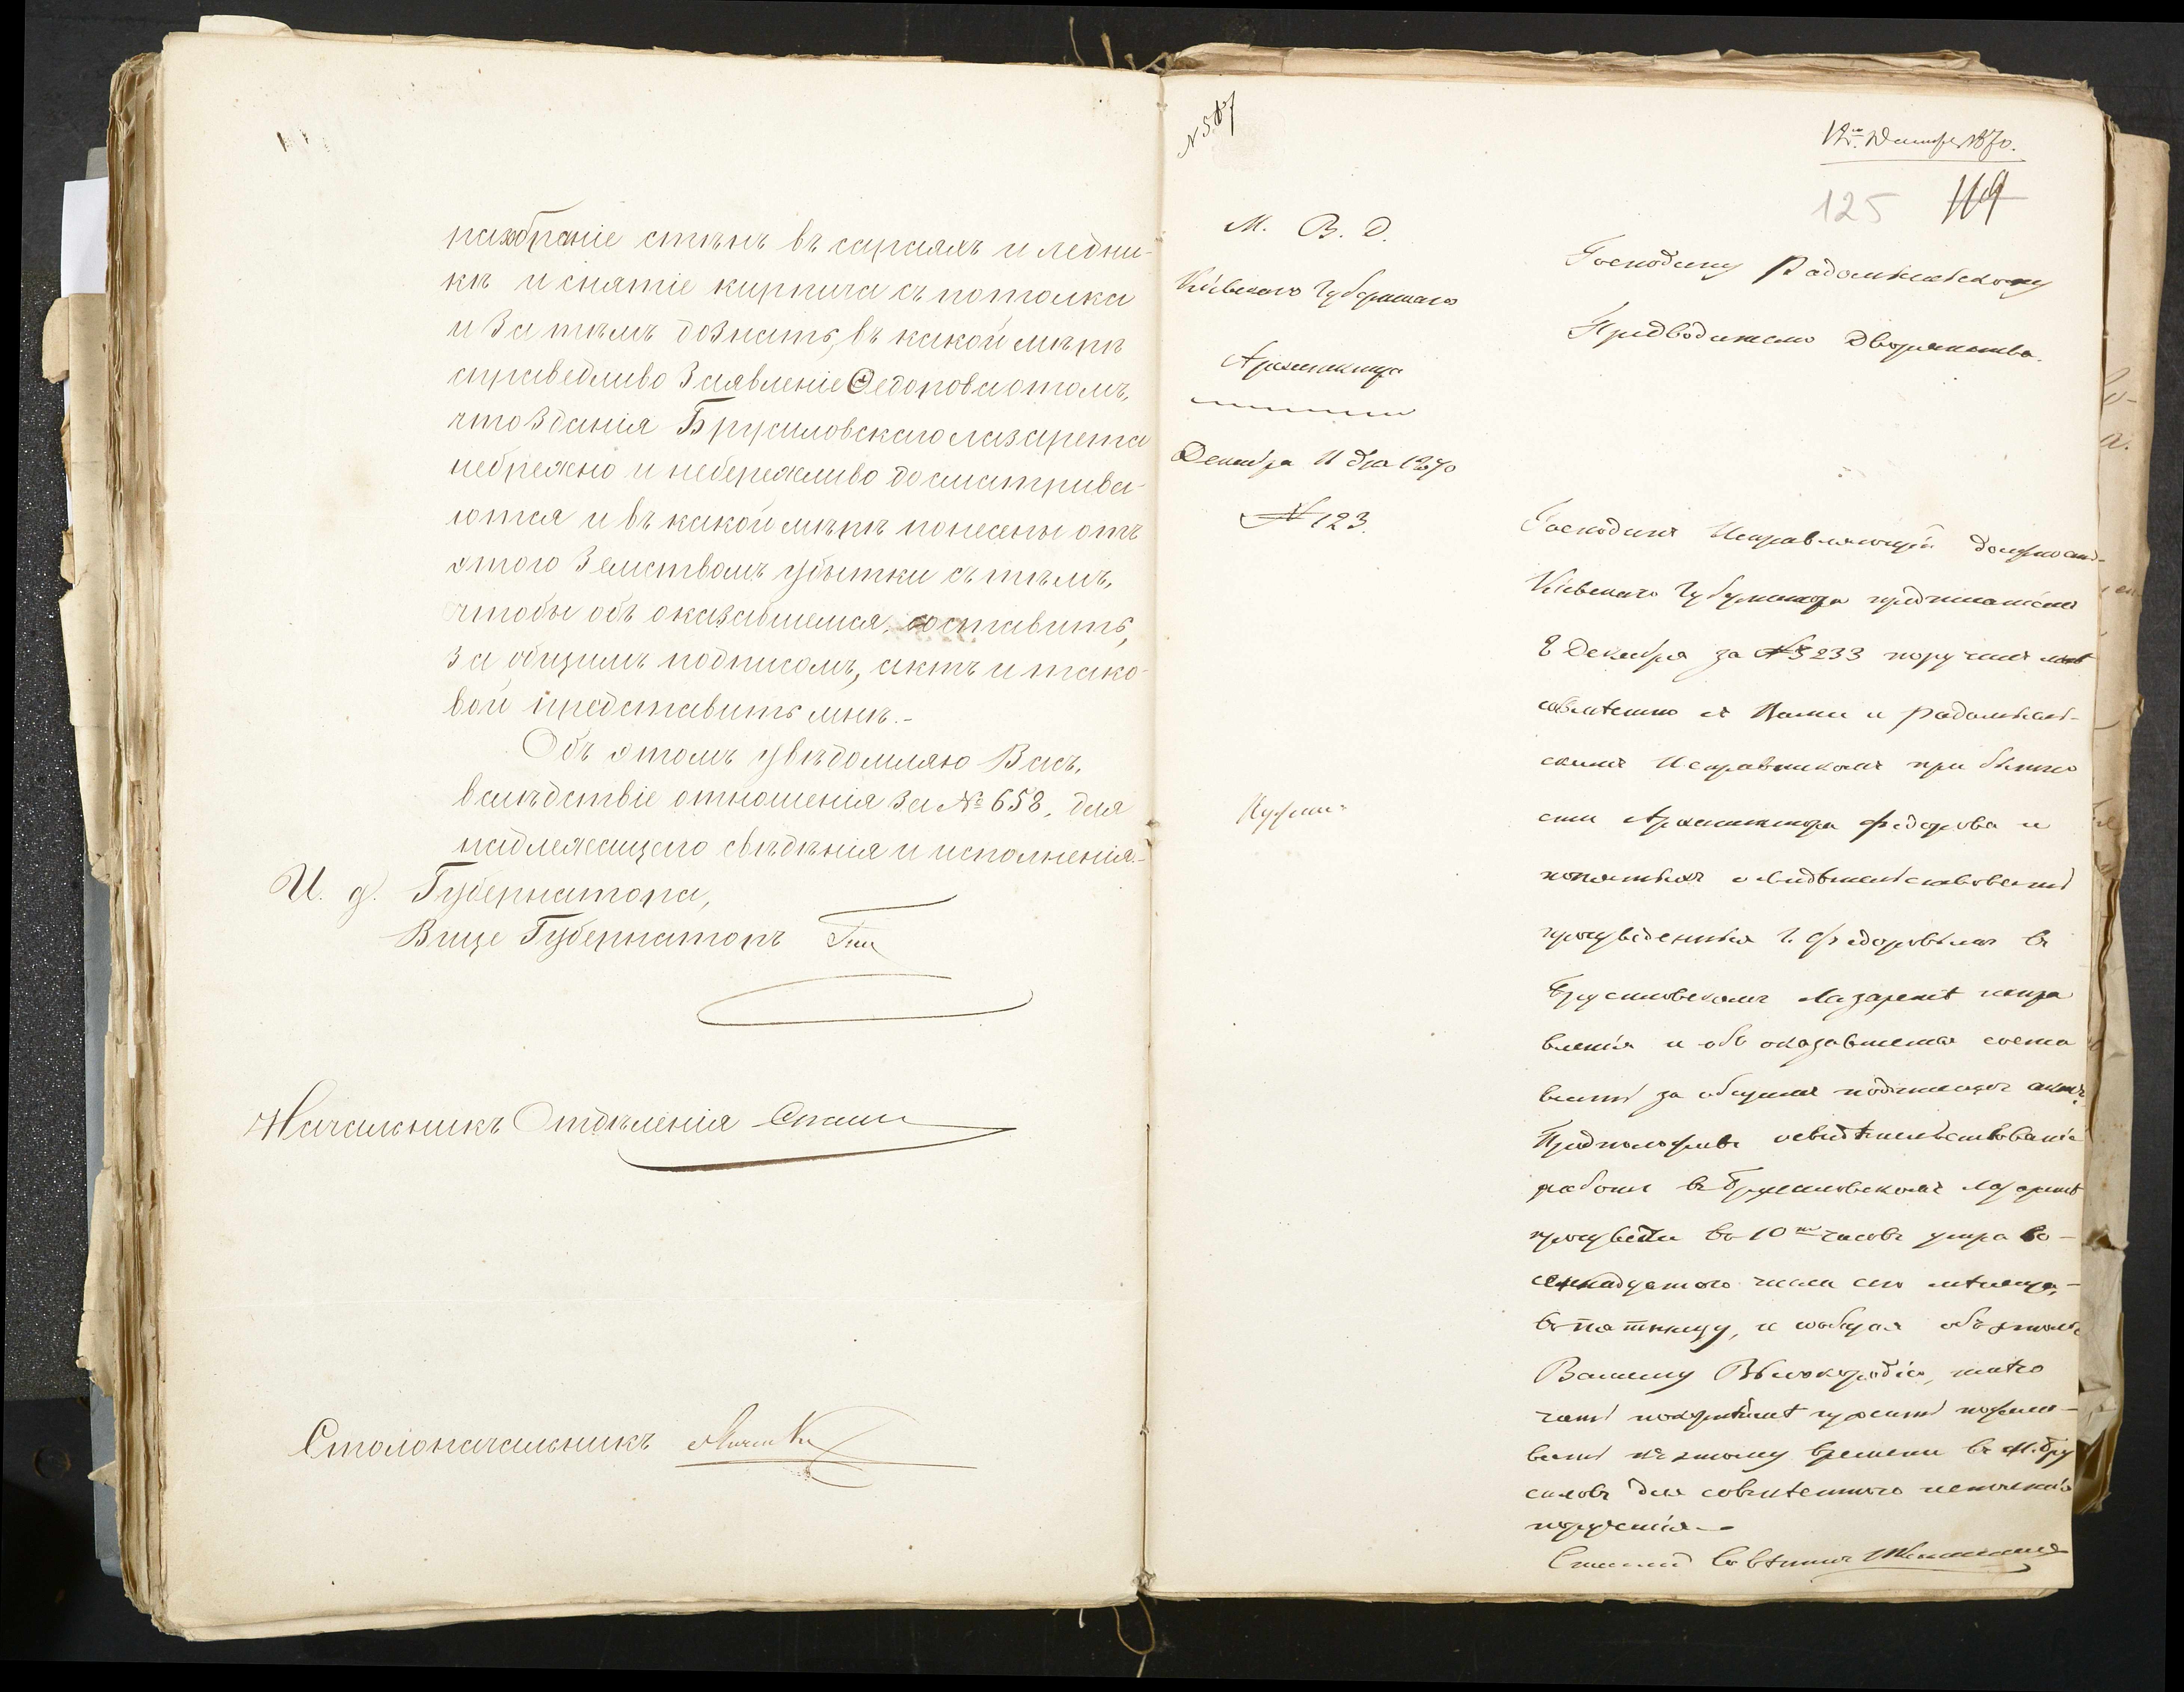 разобраніе стѣнъ въ сараяхъ и ледни-
кѣ и снятіе кирпича съ потолка
и за тѣмъ дознать, въ какой мѣрѣ
справедливо заявленіе Федорова о томъ,
что зданія Брусиловскаго лазарета
небрежно и небережливо досматрива-
ются и въ какой мѣрѣ понесены отъ
этого Земствомъ убытки съ тѣмъ,
чтобы объ оказавшемся, составить,
за общимъ подписомъ, актъ и тако-
вой представить мнѣ.-
Объ этомъ увѣдомляю Васъ,
вслѣдствіе отношенія за № 658, для
надлежащаго свѣдѣнія и исполненія.-
И. д. Губернатора,
Вице Губернаторъ
Начальникъ Отдѣленія
Столоначальникъ
12го Декабря 1870.
125 119
М. В. Д.
Кіевскаго Губернскаго
Архитектора
Декабря 11 дня 1870
№ 123.
Господину Радомысльскому
Предводителю Дворянства.
Господинъ Исправляющій должность
Кіевскаго Губернатора предписаніемъ
8 Декабря за № 5233 поручилъ мнѣ
совмѣстно съ Вами и Радомысль-
скимъ Исправникомъ при бытно
сти Архитектора Федорова и
понятыхъ освидѣтельствовать
произведенныя г. Федоровымъ въ
Брусиловскомъ Лазаретѣ испра
вленія и объ оказавшемся соста
вить за общимъ подписомъ актъ.
Предположивъ освидѣтельствованіе
работъ въ Брусиловскомъ Лазаретѣ
произвести въ 10ть часовъ утра во-
семнадцатаго числа сего мѣсяца,-
въ пятницу, и сообщая объ этомъ
Вашему Высокородію, имѣю
честь покорнѣйше просить пожало-
вать къ этому времени въ М. Бру
силовъ для совмѣстнаго исполненія
порученія.-
Статскій Совѣтникъ